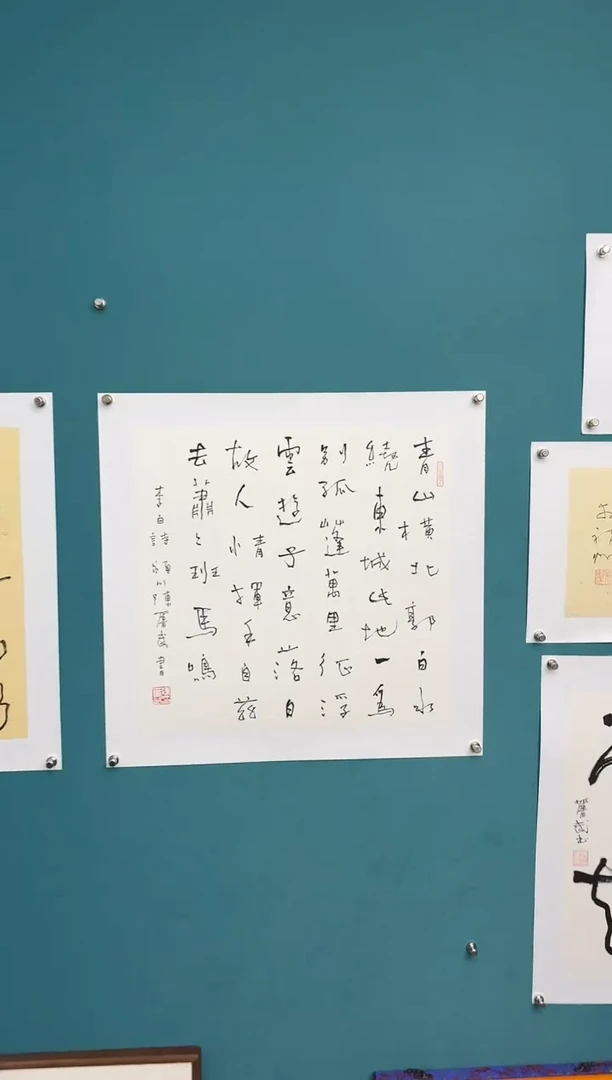 青山橫北郭白水
繞東城此地一為
別孤蓬萬里征浮
雲遊子意落日
故人情揮手自茲
去蕭〻班馬鳴
李白詩 書